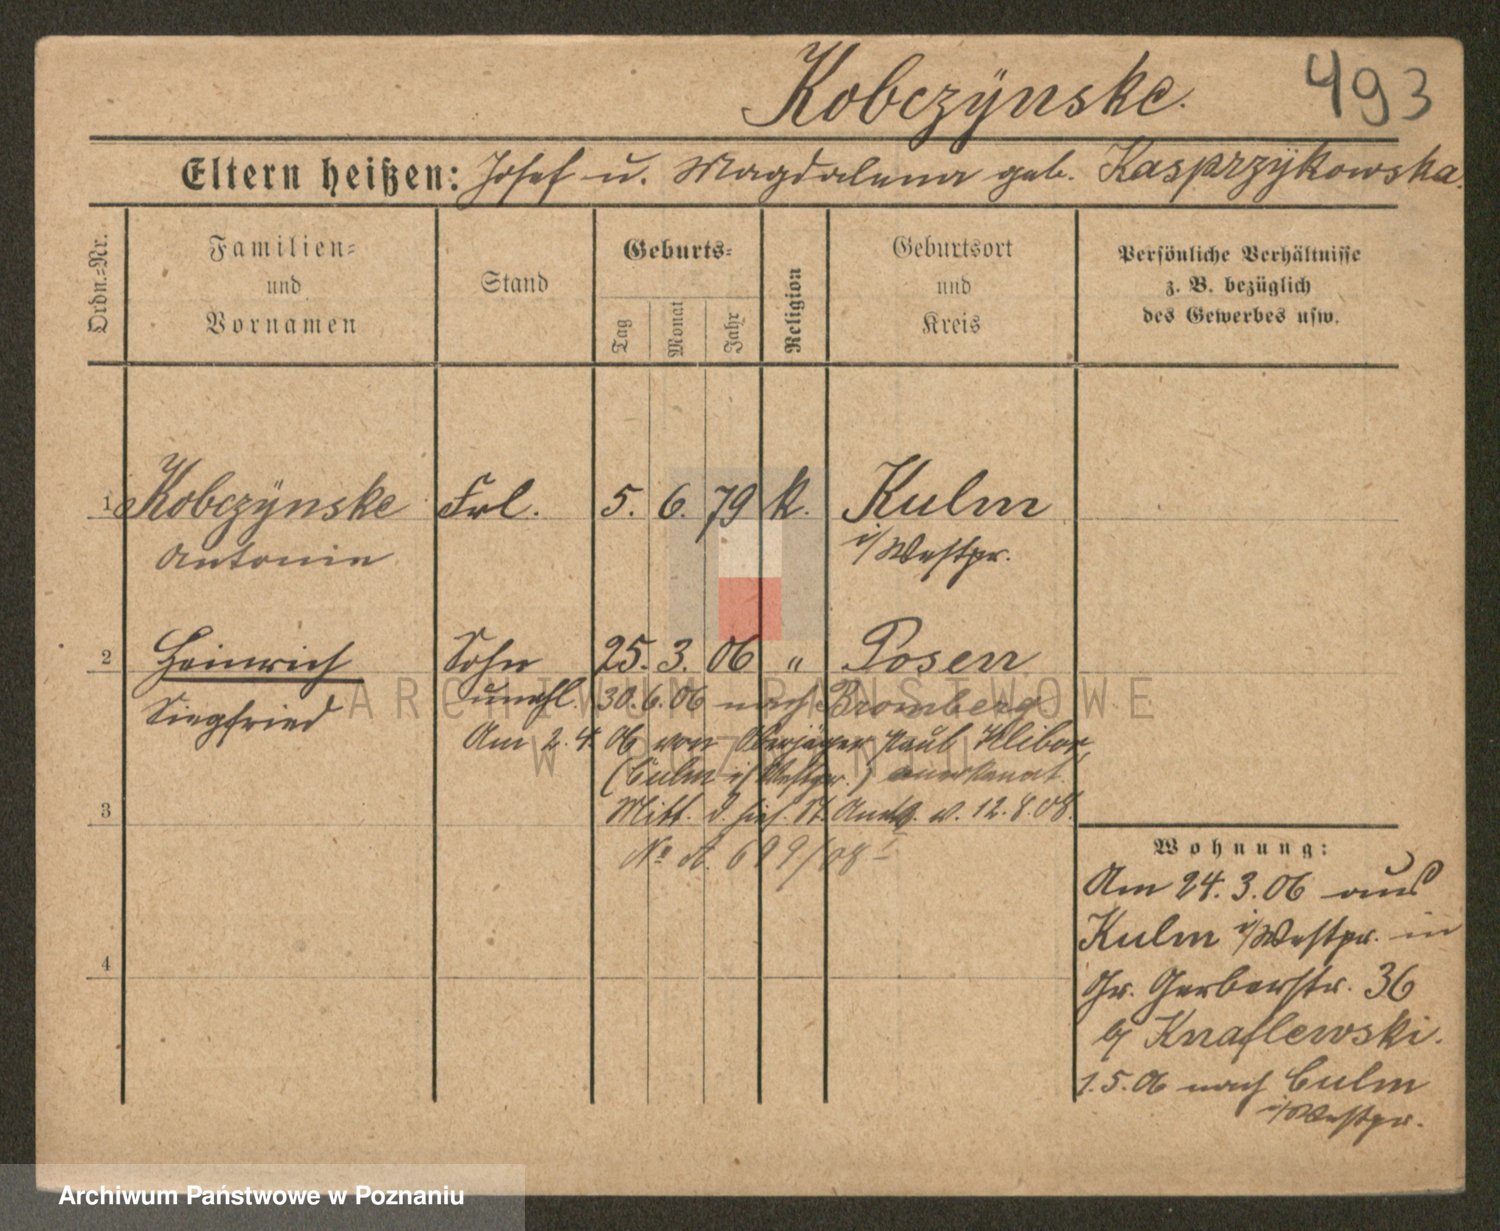 Kobczÿnske.
493
Eltern heißen: Josef u. Magdalena geb. Kasprzÿkowska.
Ordn.=Nr.
Familien=
und
Vornamen
Stand
Geburts=
Tag
Monat
Jahr
Religion
Geburtsort
und
Kreis
Persönliche Verhältnisse
z. B. bezüglich
des Gewerbes usw.
1 Kobczÿnske Frl. 5. 6. 79 k. Kulm
Antonie i/Westpr.
2 Heinrich Sohn 25. 3. 06 " Posen
Siegfried unehl. 30.6.06 nach Bromberg
Am 2. 4. 06 von Oberjäger Paul Klibor,
(Culm i/Westpr.) anerkannt.
3 Mitt. d. hies. St. Amts v. 12.8.08.
No A. 699/08 I
4
Wohnung:
Am 24.3.06 aus
Kulm i/Westpr. in
Gr. Gerberstr. 36
b/ Knaflewski.
1.5.06 nach Culm
i/Westpr.
ARCHIWUM PAŃSTWOWE
W POZNANIU
Archiwum Państwowe w Poznaniu